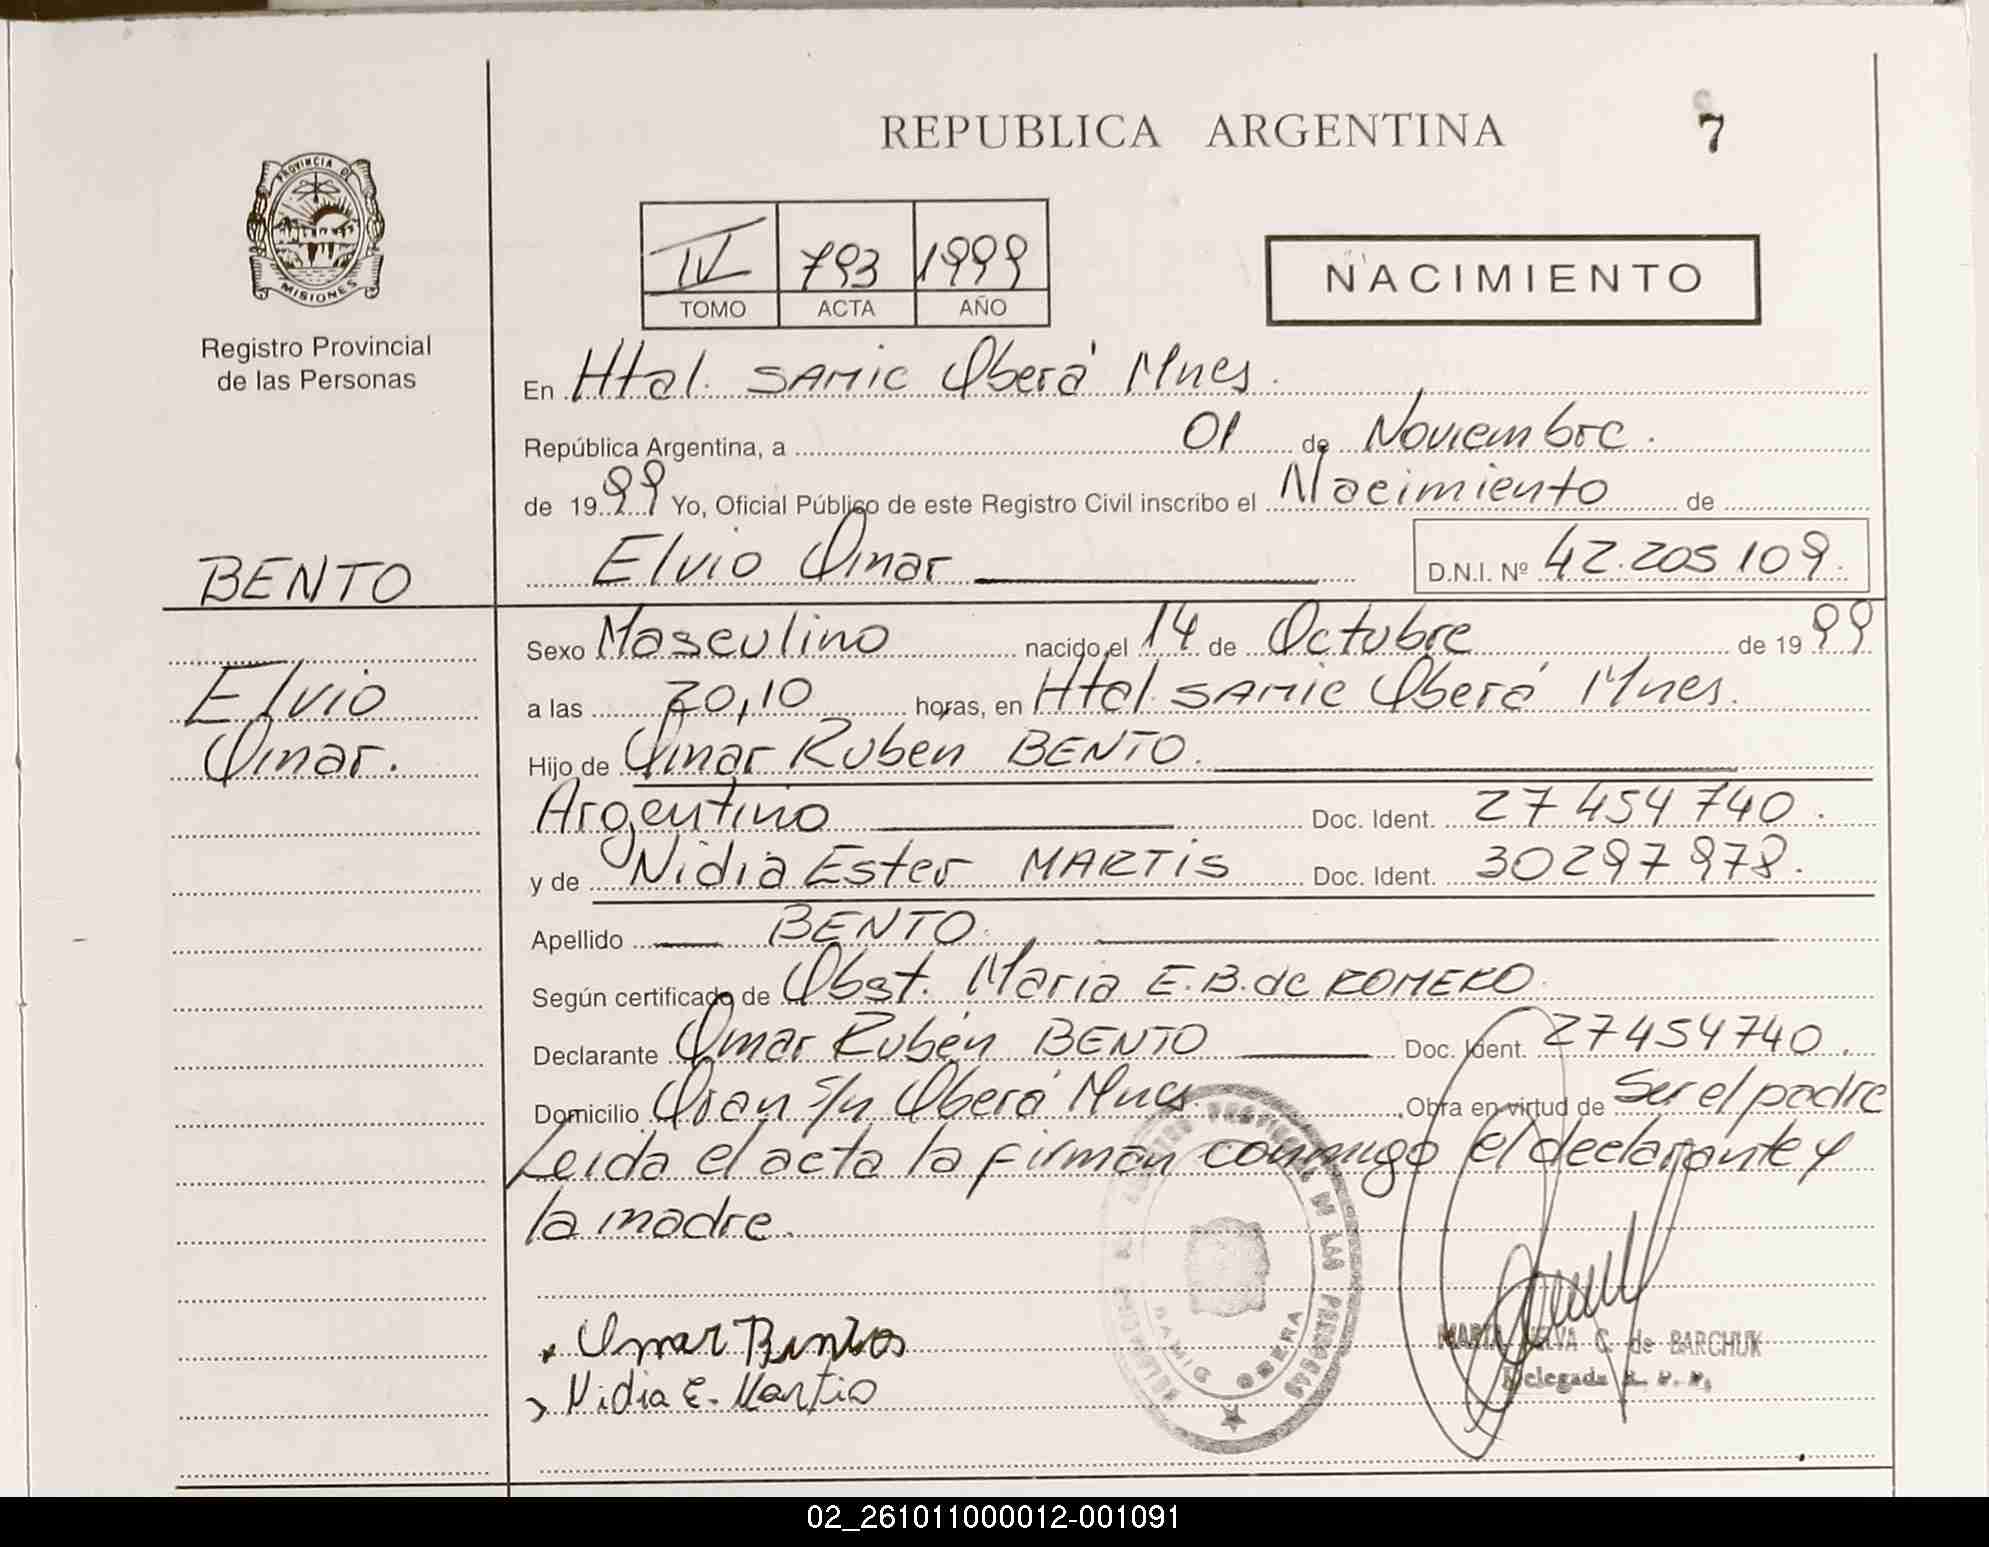 REPUBLICA ARGENTINA
7
PROVINCIA DE
MISIONES
Registro Provincial
de las Personas
IV 793 1999
TOMO ACTA AÑO
NACIMIENTO
En Htal. SAMIC Oberá Mnes.
República Argentina, a 01 de Noviembre.
de 1999 Yo, Oficial Público de este Registro Civil inscribo el Nacimiento de
BENTO
Elvio Omar D.N.I. Nº 42.205 109.
Elvio
Omar.
Sexo Masculino nacido el 14 de Octubre de 1999
a las 20,10 horas, en Htal. SAMIC Oberá Mnes.
Hijo de Omar Ruben BENTO.
Argentino Doc. Ident. 27 454 740.
y de Nidia Ester MARTIS Doc. Ident. 30 297 978.
Apellido BENTO.
Según certificado de Obst. Maria E.B. de ROMERO.
Declarante Omar Rubén BENTO Doc. Ident. 27454740.
Domicilio Oran s/n Oberá Mnes. Obra en virtud de Ser el padre
Leida el acta la firman conmigo el declarante y
la madre.
Omar
Nidia E.
OBERA
de BARCHUK
Delegada
02_261011000012-001091